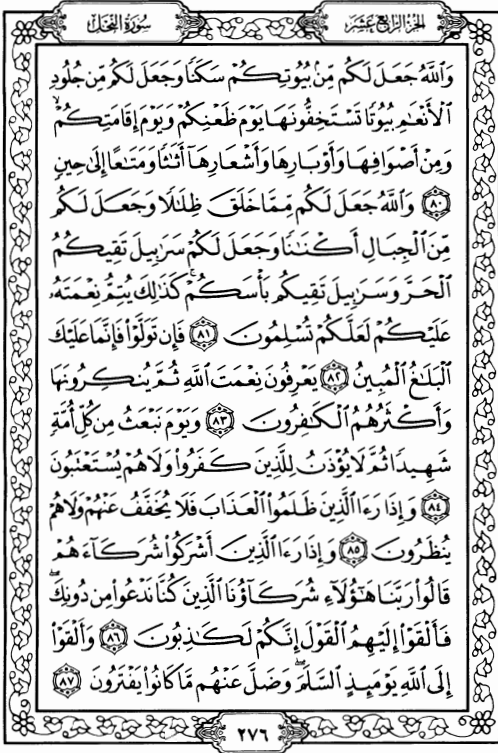 الجزء الرابع عشر
سورة النحل
وَاللَّهُ جَعَلَ لَكُم مِّنۢ بُيُوتِكُمْ سَكَنًا وَجَعَلَ لَكُم مِّن جُلُودِ
الْأَنْعَٰمِ بُيُوتًا تَسْتَخِفُّونَهَا يَوْمَ ظَعْنِكُمْ وَيَوْمَ إِقَامَتِكُمْ ۙ
وَمِنْ أَصْوَافِهَا وَأَوْبَارِهَا وَأَشْعَارِهَآ أَثَٰثًا وَمَتَٰعًا إِلَىٰ حِينٍ
﴿٨٠﴾ وَاللَّهُ جَعَلَ لَكُم مِّمَّا خَلَقَ ظِلَٰلًا وَجَعَلَ لَكُم
مِّنَ الْجِبَالِ أَكْنَٰنًا وَجَعَلَ لَكُمْ سَرَٰبِيلَ تَقِيكُمُ
الْحَرَّ وَسَرَٰبِيلَ تَقِيكُم بَأْسَكُمْ ۚ كَذَٰلِكَ يُتِمُّ نِعْمَتَهُۥ
عَلَيْكُمْ لَعَلَّكُمْ تُسْلِمُونَ ﴿٨١﴾ فَإِن تَوَلَّوْا۟ فَإِنَّمَا عَلَيْكَ
الْبَلَٰغُ الْمُبِينُ ﴿٨٢﴾ يَعْرِفُونَ نِعْمَتَ اللَّهِ ثُمَّ يُنكِرُونَهَا
وَأَكْثَرُهُمُ الْكَٰفِرُونَ ﴿٨٣﴾ وَيَوْمَ نَبْعَثُ مِن كُلِّ أُمَّةٍ
شَهِيدًا ثُمَّ لَا يُؤْذَنُ لِلَّذِينَ كَفَرُوا۟ وَلَا هُمْ يُسْتَعْتَبُونَ
﴿٨٤﴾ وَإِذَا رَءَا الَّذِينَ ظَلَمُوا۟ الْعَذَابَ فَلَا يُخَفَّفُ عَنْهُمْ وَلَا هُمْ
يُنظَرُونَ ﴿٨٥﴾ وَإِذَا رَءَا الَّذِينَ أَشْرَكُوا۟ شُرَكَآءَهُمْ
قَالُوا۟ رَبَّنَا هَٰٓؤُلَآءِ شُرَكَآؤُنَا الَّذِينَ كُنَّا نَدْعُوا۟ مِن دُونِكَ ۖ
فَأَلْقَوْا۟ إِلَيْهِمُ الْقَوْلَ إِنَّكُمْ لَكَٰذِبُونَ ﴿٨٦﴾ وَأَلْقَوْا۟
إِلَى اللَّهِ يَوْمَئِذٍ السَّلَمَ ۖ وَضَلَّ عَنْهُم مَّا كَانُوا۟ يَفْتَرُونَ ﴿٨٧﴾
٢٧٦